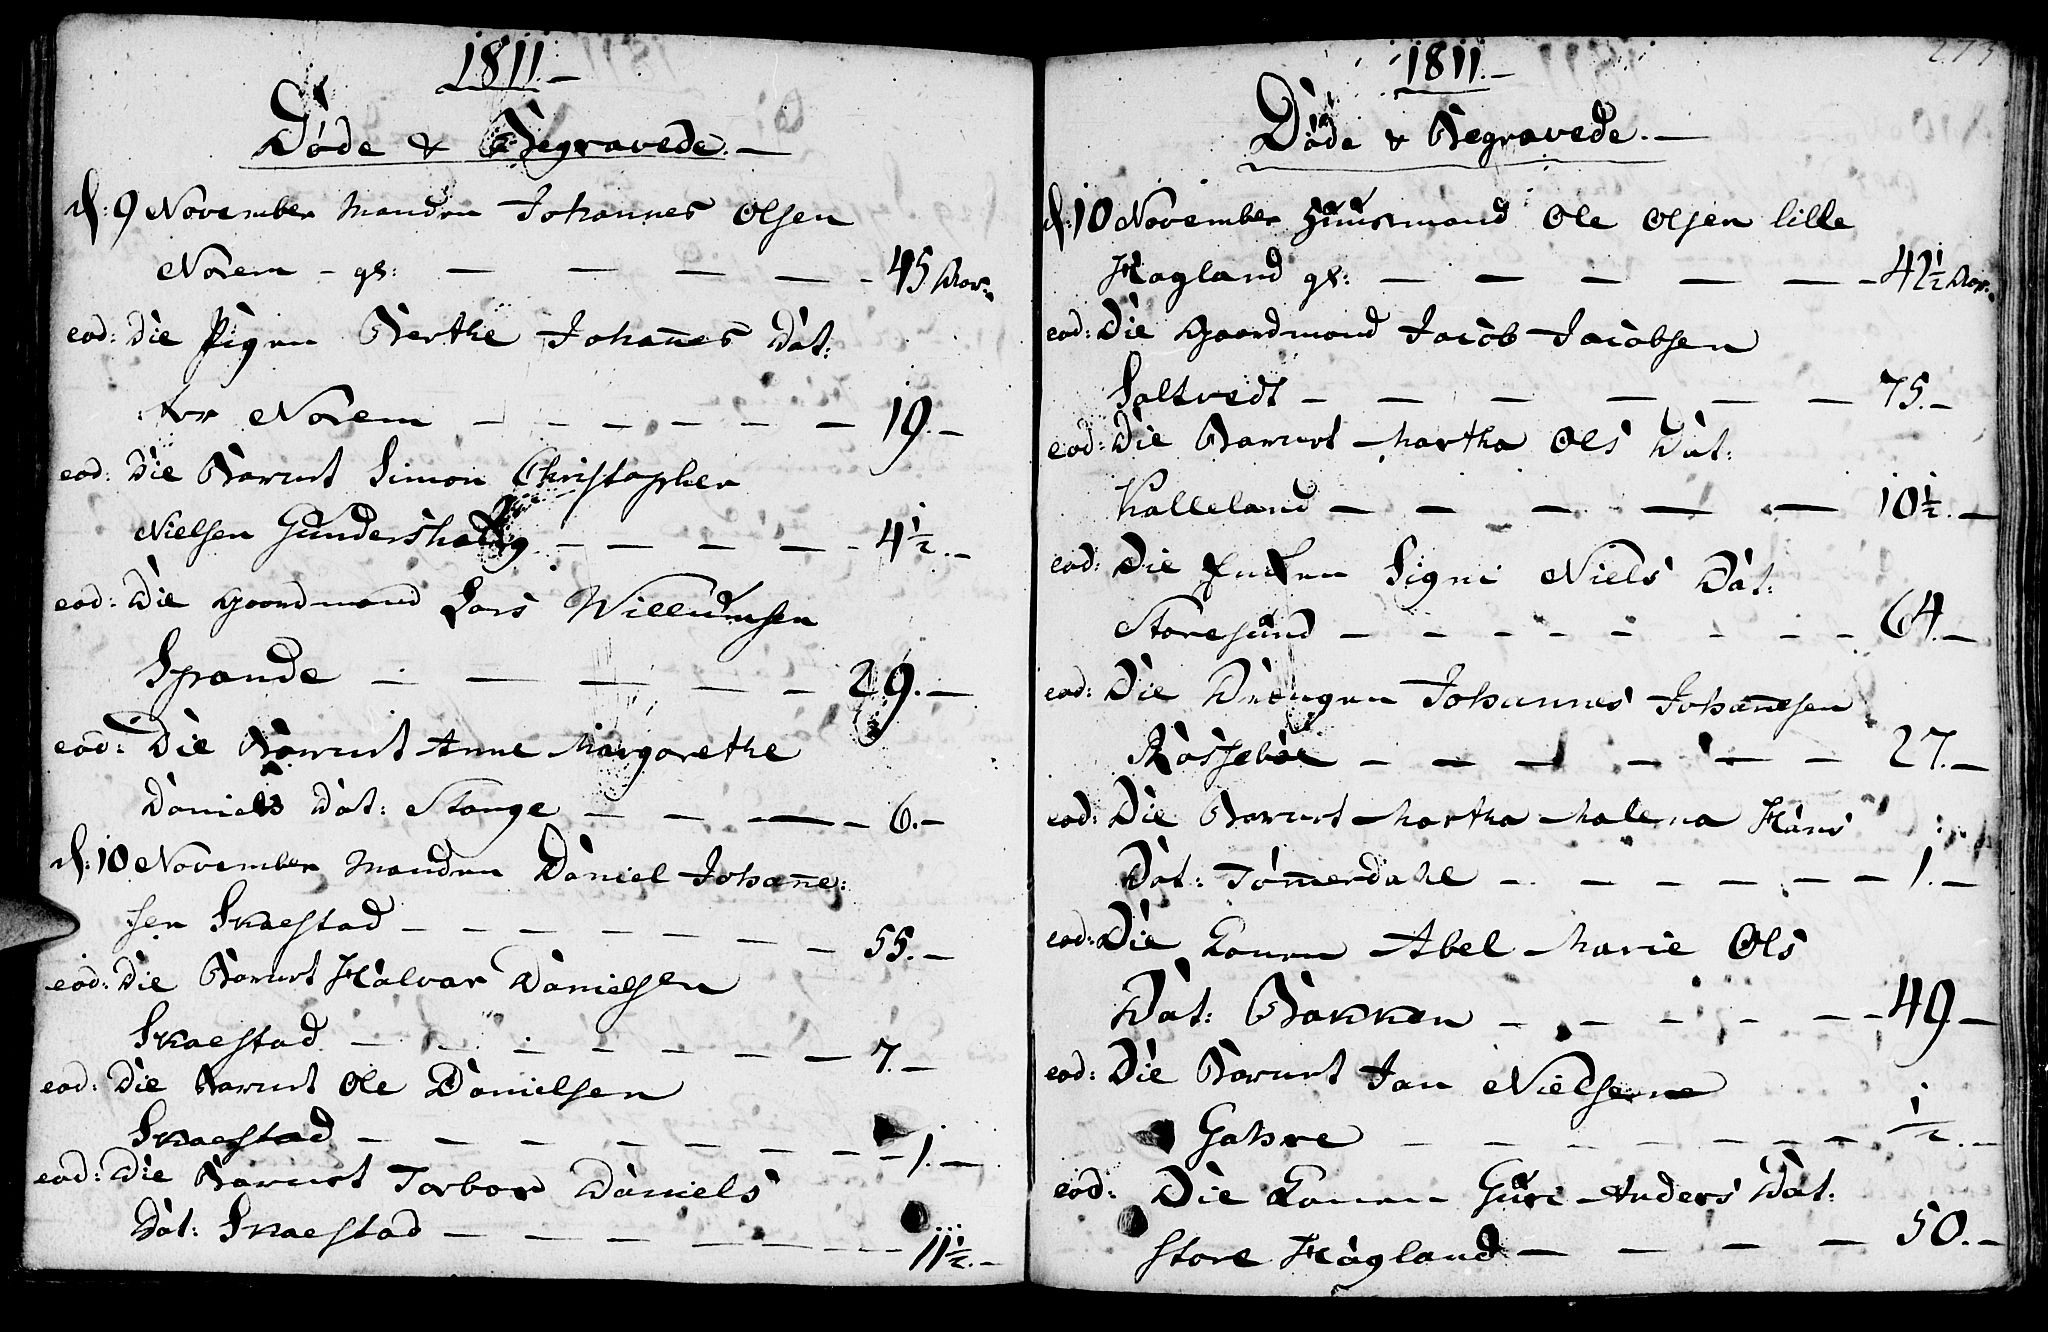 1811.-
Døde & Begravede.-
d: 9 November Manden Johannes Olsen
Norem - gl: - - - - - 45 Aar.
eod: Die Pigen Berthe Johañes Dat:
ter Norem - - - - - - 19.-
eod: Die Barnet Simon Christopher
Nielsen Gundershaug - - - - - 4½.-
eod: Die Gaardmand Lars Willumsen
Spande - - - - - 29.-
eod: Die Barnet Anne Margarethe
Daniels Dat: Stange - - - - 6.-
d: 10 November Manden Daniel Johañe:
sen Skaestad - - - - - - - - 55.-
eod: Die Barnet Halvar Danielsen
Skaestad - - - - - - - 7.-
eod: Die Barnet Ole Danielsen
Skaestad - - - - - - - - - 1.-
eod: Die Barnet Torbor Daniels
Dat: Skaestad - - - - - - - - 11½.-
273
1811.-
Døde & Begravede.-
d: 10 November Huusmand Ole Olsen lille
Hagland gl: - - - - - - 42½ Aar.
eod: Die Gaardmand Jacob Jacobsen
Saltvedt - - - - - - 75.-
eod: Die Barnet Martha Ols Dat:
Kalleland - - - - - 10½.-
eod: Die Enken Signi Niels Dat:
Storesund - - - - - - - 64.-
eod: Die Drengen Johannes Johañesen
Røssebøe - - - - - - 27.-
eod: Die Barnet Martha Malena Hans
Dat: Tømerdahl - - - - - - 1.-
eod: Die Konen Abel Marie Ols
Dat: Bakken - - - - - - 49.-
eod: Die Barnet Jan Nielsene
Gahre - - - - - - - ½.-
eod: Die Konen Guri Anders Dat:
Store Hagland - - - - 50.-